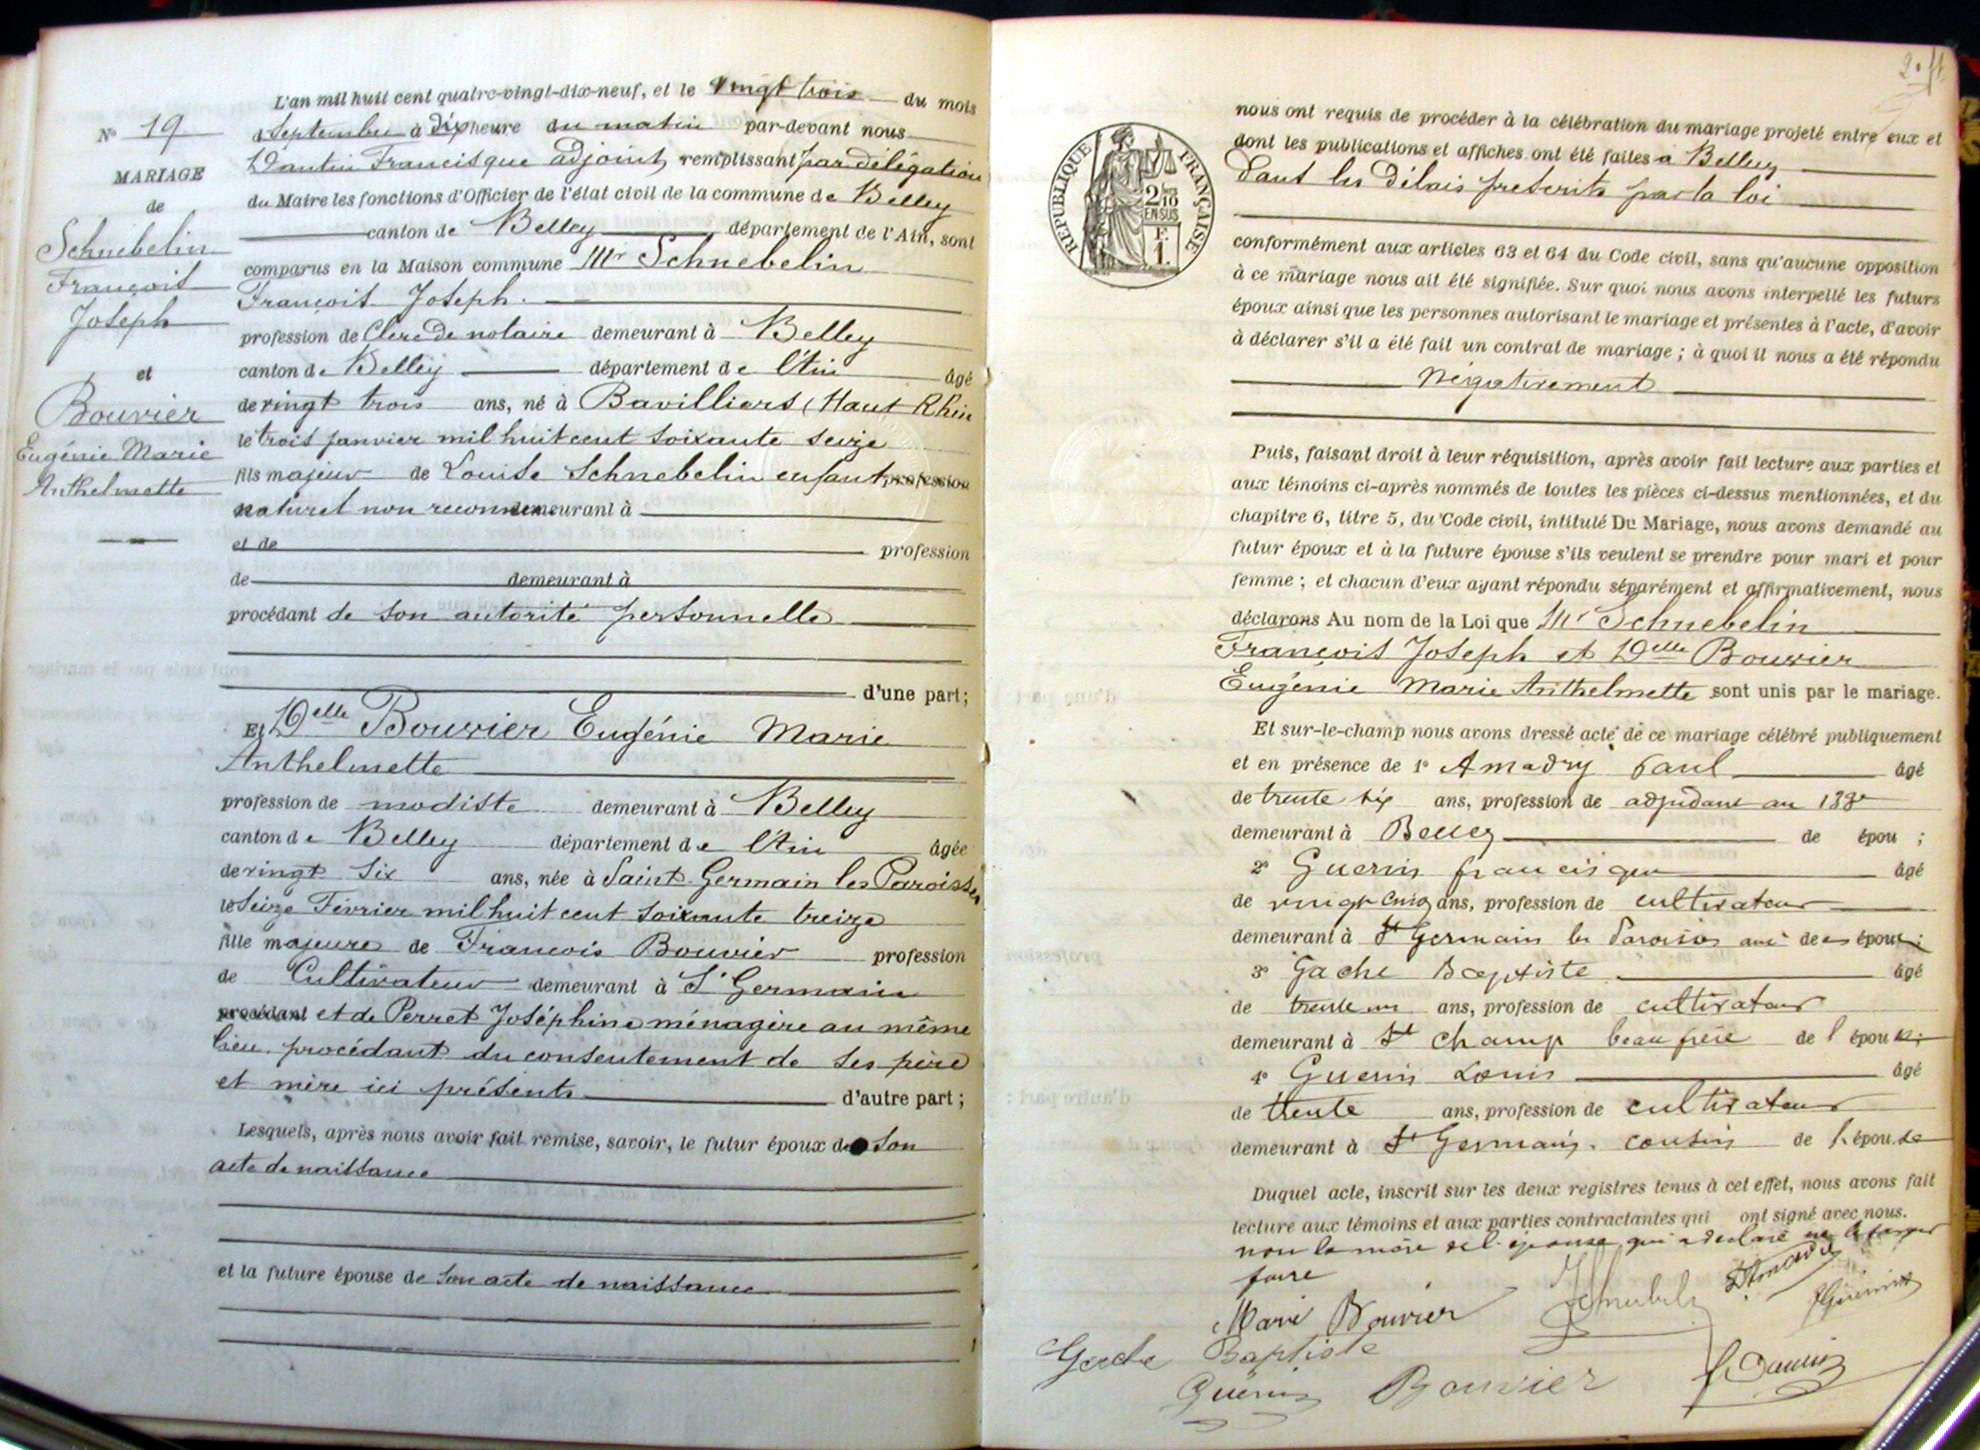 L'an mil huit cent quatre-vingt-dix-neuf, et le vingt trois du mois
d Septembre à dix heure du matin par-devant nous
Dantin Francisque adjoint, remplissant par délégation
du Maire les fonctions d'Officier de l'état civil de la commune de Belley
canton de Belley département de l'Ain, sont
comparus en la Maison commune Mr Schnebelin
François Joseph.
profession de Clerc de notaire demeurant à Belley
canton de Belley département de l'Ain âgé
de vingt trois ans, né à Bavilliers (Haut Rhin
le trois janvier mil huit cent soixante seize
fils majeur de Louise Schnebelin enfant profession
naturel non reconnu demeurant à
et de profession
de demeurant à
procédant de son autorité personnelle
d'une part;
Et Delle Bouvier Eugénie Marie
Anthelmette
profession de modiste demeurant à Belley
canton de Belley département de l'Ain âgée
de vingt six ans, née à Saint Germain les Paroisses
le Seize Février mil huit cent soixante treize
fille majeure de Francois Bouvier profession
de Cultivateur demeurant à St Germain
procédant et de Perret Joséphine ménagère au même
lieu. procédant du consentement de ses père
et mère ici présents d'autre part;
Lesquels, après nous avoir fait remise, savoir, le futur époux de son
acte de naissance
et la future épouse de son acte de naissance
N° 19
MARIAGE
de
Schnebelin
François
Joseph
et
Bouvier
Eugénie Marie
Anthelmette
RÉPUBLIQUE FRANÇAISE
2/10
EN SUS
F.
1.
nous ont requis de procéder à la célébration du mariage projeté entre eux et
dont les publications et affiches ont été faites à Belley
dans les délais prescrits par la loi
conformément aux articles 63 et 64 du Code civil, sans qu'aucune opposition
à ce mariage nous ait été signifiée. Sur quoi nous avons interpellé les futurs
époux ainsi que les personnes autorisant le mariage et présentes à l'acte, d'avoir
à déclarer s'il a été fait un contrat de mariage; à quoi il nous a été répondu
négativement
Puis, faisant droit à leur réquisition, après avoir fait lecture aux parties et
aux témoins ci-après nommés de toutes les pièces ci-dessus mentionnées, et du
chapitre 6, titre 5, du Code civil, intitulé Du Mariage, nous avons demandé au
futur époux et à la future épouse s'ils veulent se prendre pour mari et pour
femme; et chacun d'eux ayant répondu séparément et affirmativement, nous
déclarons Au nom de la Loi que Mr Schnebelin
François Joseph et Delle Bouvier
Eugénie Marie Anthelmette sont unis par le mariage.
Et sur-le-champ nous avons dressé acte de ce mariage célébré publiquement
et en présence de 1° Amadry Paul âgé
de trente six ans, profession de adjudant au 133e
demeurant à Belley de épou ;
2° Guerin francisque âgé
de vingt cinq ans, profession de cultivateur
demeurant à St Germain les Paroisses ami des époux;
3° Gache Baptiste âgé
de trente un ans, profession de cultivateur
demeurant à St Champ beau frère de l'épouse;
4° Guerin Louis âgé
de trente ans, profession de cultivateur
demeurant à St Germain. cousin de l'épouse
Duquel acte, inscrit sur les deux registres tenus à cet effet, nous avons fait
lecture aux témoins et aux parties contractantes qui ont signé avec nous.
non la mère de l'épouse qui a déclaré ne le savoir
faire
Marie Bouvier Schnebelin Amadry Guerin
Gache Baptiste
Guérin Bouvier F. Dantin